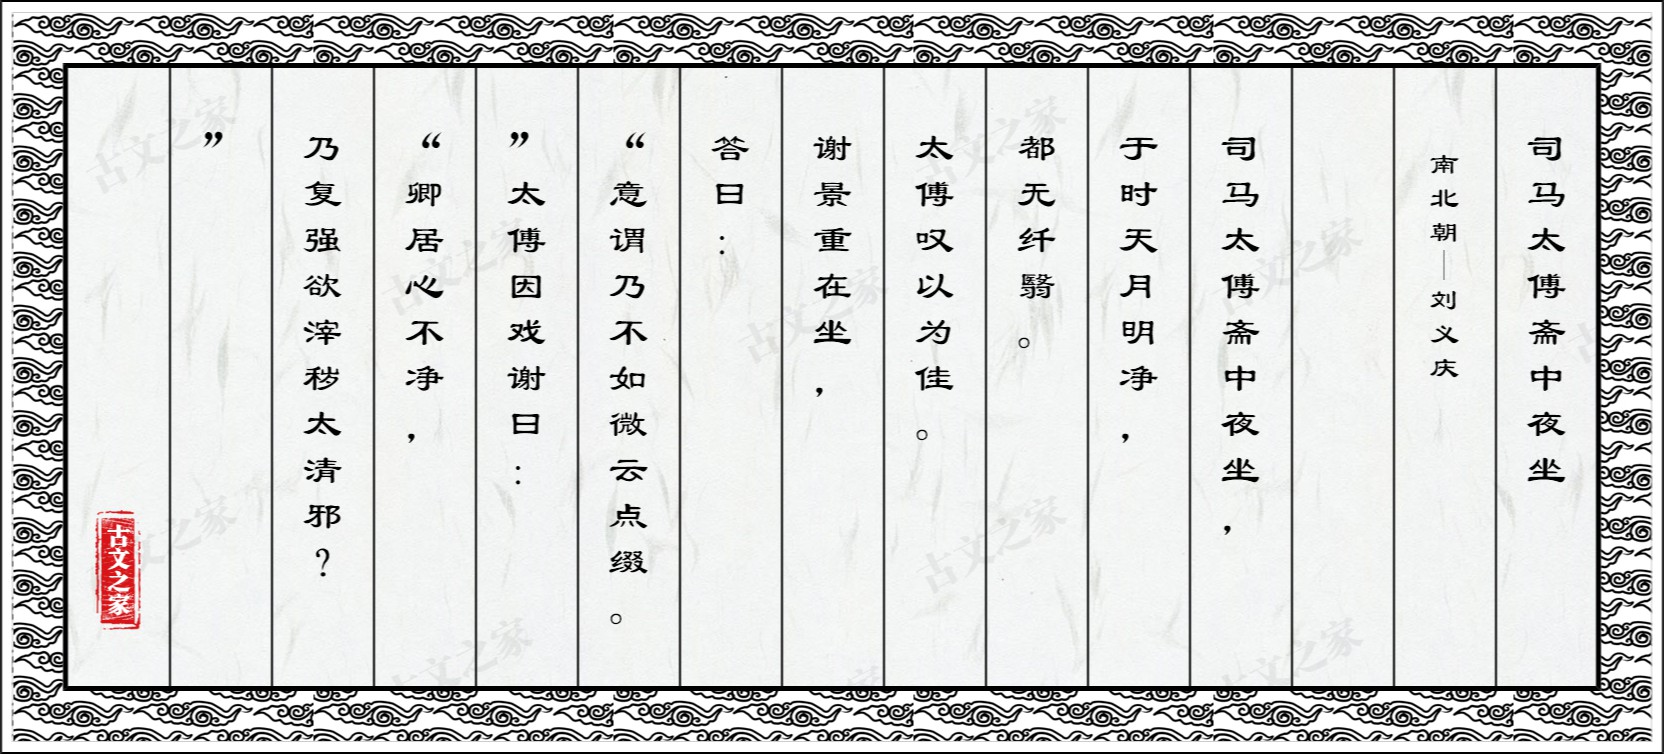 司马太傅斋中夜坐
南北朝—刘义庆
司马太傅斋中夜坐，
于时天月明净，
都无纤翳。
太傅叹以为佳。
谢景重在坐，
答曰：
“意谓乃不如微云点缀。
”太傅因戏谢曰：
“卿居心不净，
乃复强欲滓秽太清邪？
”
古文之家